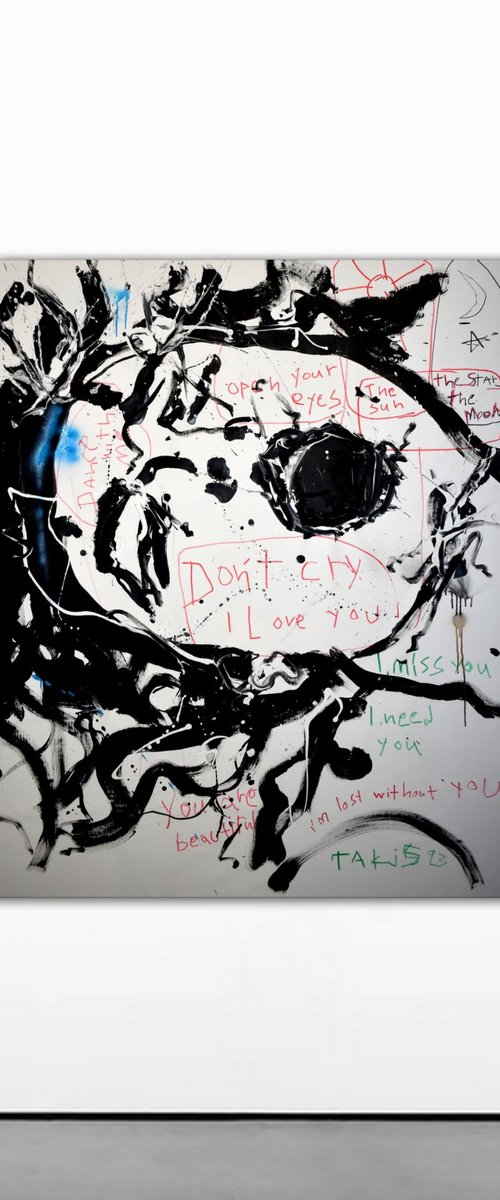 open your
eyes
The
sun
the STAR
the
MOON
DANCE
with
Me
Don't cry
I Love you!
I miss you
I need
you
you are
beautiful
i'm lost without YOU
TAKiS 23